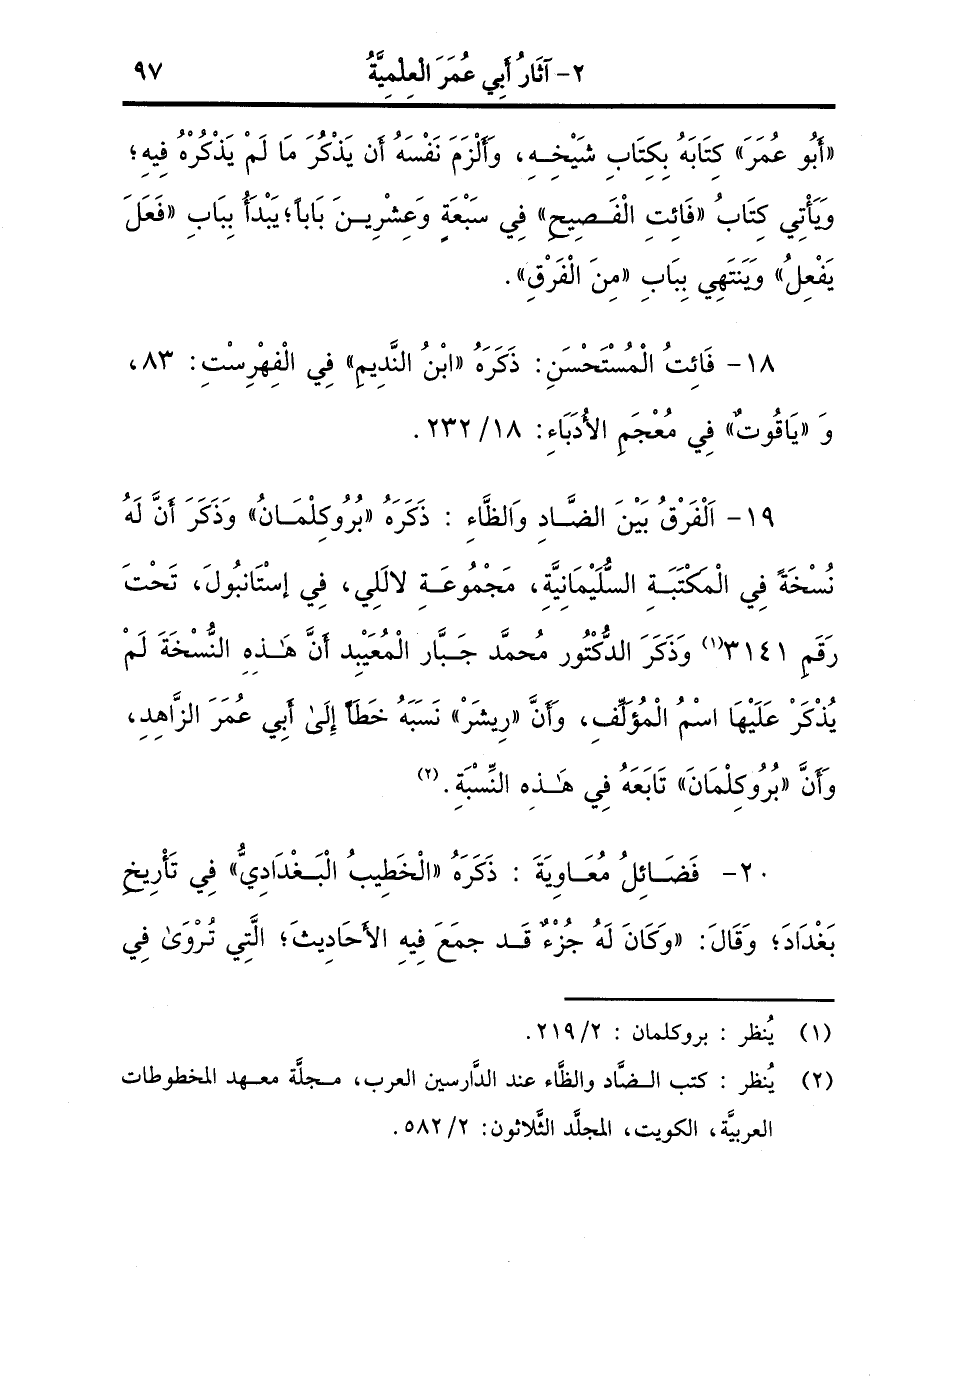 ٢- آثَارُ أَبي عُمَرَ الْعِلْمِيَّةُ ٩٧
«أَبُو عُمَرَ» كِتَابَهُ بِكِتَابِ شَيْخِهِ، وَأَلْزَمَ نَفْسَهُ أَن يَذْكُرَ مَا لَمْ يَذْكُرْهُ فِيهِ؛
وَيَأْتِي كِتَابُ «فَائِتِ الْفَصِيحِ» فِي سَبْعَةٍ وَعِشْرِينَ بَاباً؛ يَبْدَأُ بِبَابِ «فَعَلَ
يَفْعِلُ» وَيَنتَهِي بِبَابِ «مِنَ الْفَرْقِ».
١٨- فَائِتُ الْمُسْتَحْسَنِ: ذَكَرَهُ «ابْنُ النَّدِيمِ» فِي الْفِهْرِسْتِ: ٨٣،
وَ «يَاقُوتٌ» فِي مُعْجَمِ الأُدَبَاءِ: ١٨/ ٢٣٢.
١٩- اَلْفَرْقُ بَيْنَ الضَّادِ وَالظَّاءِ : ذَكَرَهُ «بُرُوكِلْمَانُ» وَذَكَرَ أَنَّ لَهُ
نُسْخَةً فِي الْمَكْتَبَةِ السُّلَيْمَانِيَّةِ، مَجْمُوعَةِ لالَلِي، فِي إِسْتَانبُولَ، تَحْتَ
رَقَمِ ٣١٤١(١) وَذَكَرَ الدُّكْتُور مُحمَّد جَبَّار الْمُعَيْبِد أَنَّ هَـٰذِهِ النُّسْخَةَ لَمْ
يُذْكَرْ عَلَيْهَا اسْمُ الْمُؤَلِّفِ، وَأَنَّ «رِيشَرْ» نَسَبَهُ خَطَأً إِلَىٰ أَبِي عُمَرَ الزَّاهِدِ،
وَأَنَّ «بُرُوكِلْمَانَ» تَابَعَهُ فِي هَـٰذِهِ النِّسْبَةِ.(٢)
٢٠- فَضَائِلُ مُعَاوِيَةَ : ذَكَرَهُ «الْخَطِيبُ الْبَغْدَادِيُّ» فِي تَأْرِيخِ
بَغْدَادَ؛ وَقَالَ: «وَكَانَ لَهُ جُزْءٌ قَد جمَعَ فِيهِ الأَحَادِيثَ؛ الَّتِي تُرْوَىٰ فِي
(١) يُنظر : بروكلمان : ٢/ ٢١٩.
(٢) يُنظر : كتب الضَّاد والظَّاء عند الدَّارسين العرب، مجلَّة معهد المخطوطات
العربيَّة، الكويت، المجلَّد الثَّلاثون: ٢/ ٥٨٢.